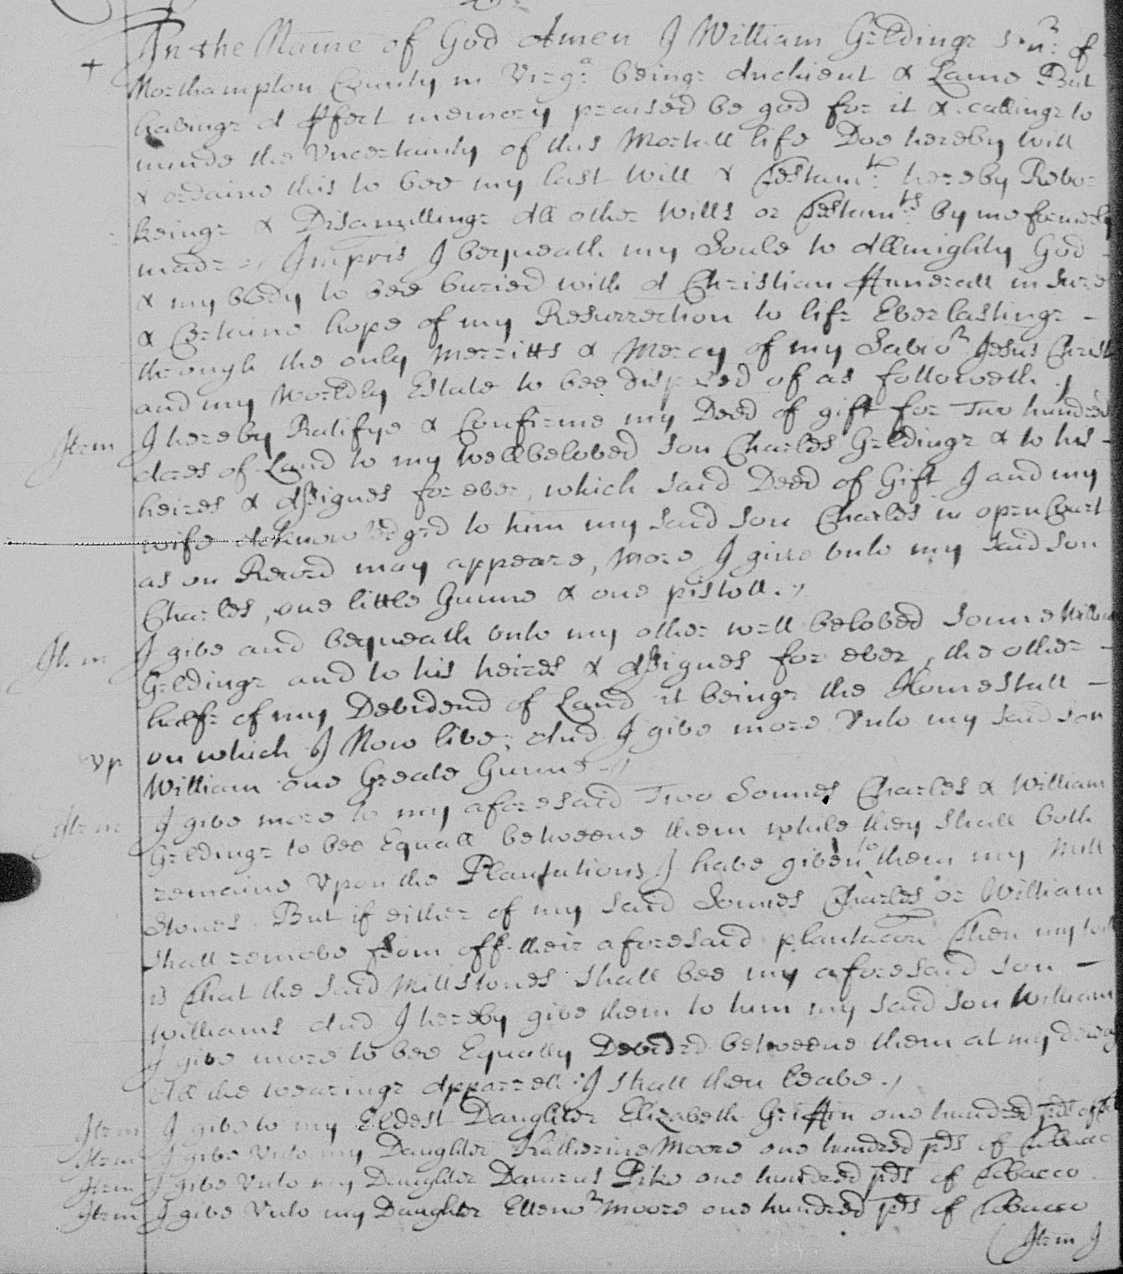 In the Name of God Amen I William Geldinge Senr: of
Northampton County in Virga being Anchient & Lame But
haveinge A pfect memory praised be god for it & calling to
minde the Uncertainty of this Mortall life Doe hereby will
& ordaine this to bee my last Will & Testamt: hereby Revo=
keinge & Disanullinge All other Wills or Testamts by me formerly
made Impris I bequeath my Soule to Allmighty God
& my body to bee buried with A Christian ffunerall in sure
& Certaine hope of my Resurrection to life Everlastinge -
through the only Merritts & Mercy of my Savior Jesus Christ
and my Worldly Estate to bee disposed of as followeth
Item I hereby Ratifye & Confirme my Deed of gift for Two hundred
Acres of Land to my wellbeloved son Charles Geldinge & to his -
heires & Assignes for ever, which said Deed of Gift I and my
wife Acknowledged to him my said son Charles in open Court
as on Record may appeare, More I give unto my said son
Charles, one little Gunne & one pistoll.
Item I give and bequeath unto my other well beloved sonne William
Geldinge and to his heires & Assignes for ever, the other -
halfe of my Devidend of Land it beinge the Homestall -
Up on which I Now live; And I give more Unto my said son
William one Greate Gunne
Item I give more to my aforesaid Two Sonnes Charles & William
Geldinge to bee Equall betweene them while they shall both
remaine Upon the Plantations I have given to them my Mill
Stones. But if either of my said Sonnes Charles or William
shall remove from off their aforesaid plantacon Then my will
is That the said Millstones shall bee my aforesaid son -
Williams And I hereby give them to him my said son William
I give more to bee Equally Devided betweene them at my
All the wearinge Apparrell I shall then leave.
Item I give to my Eldest Daughter Elizabeth Griffin one hundred pds of
Item I give Unto my Daughter Katherine Moore one hundred pds of Tobacco
Item I give Unto my Daughter Damras Pike one hundred pds of Tobacco
Item I give Unto my Daughter Ellenor Moore one hundred pds of Tobacco
Item I